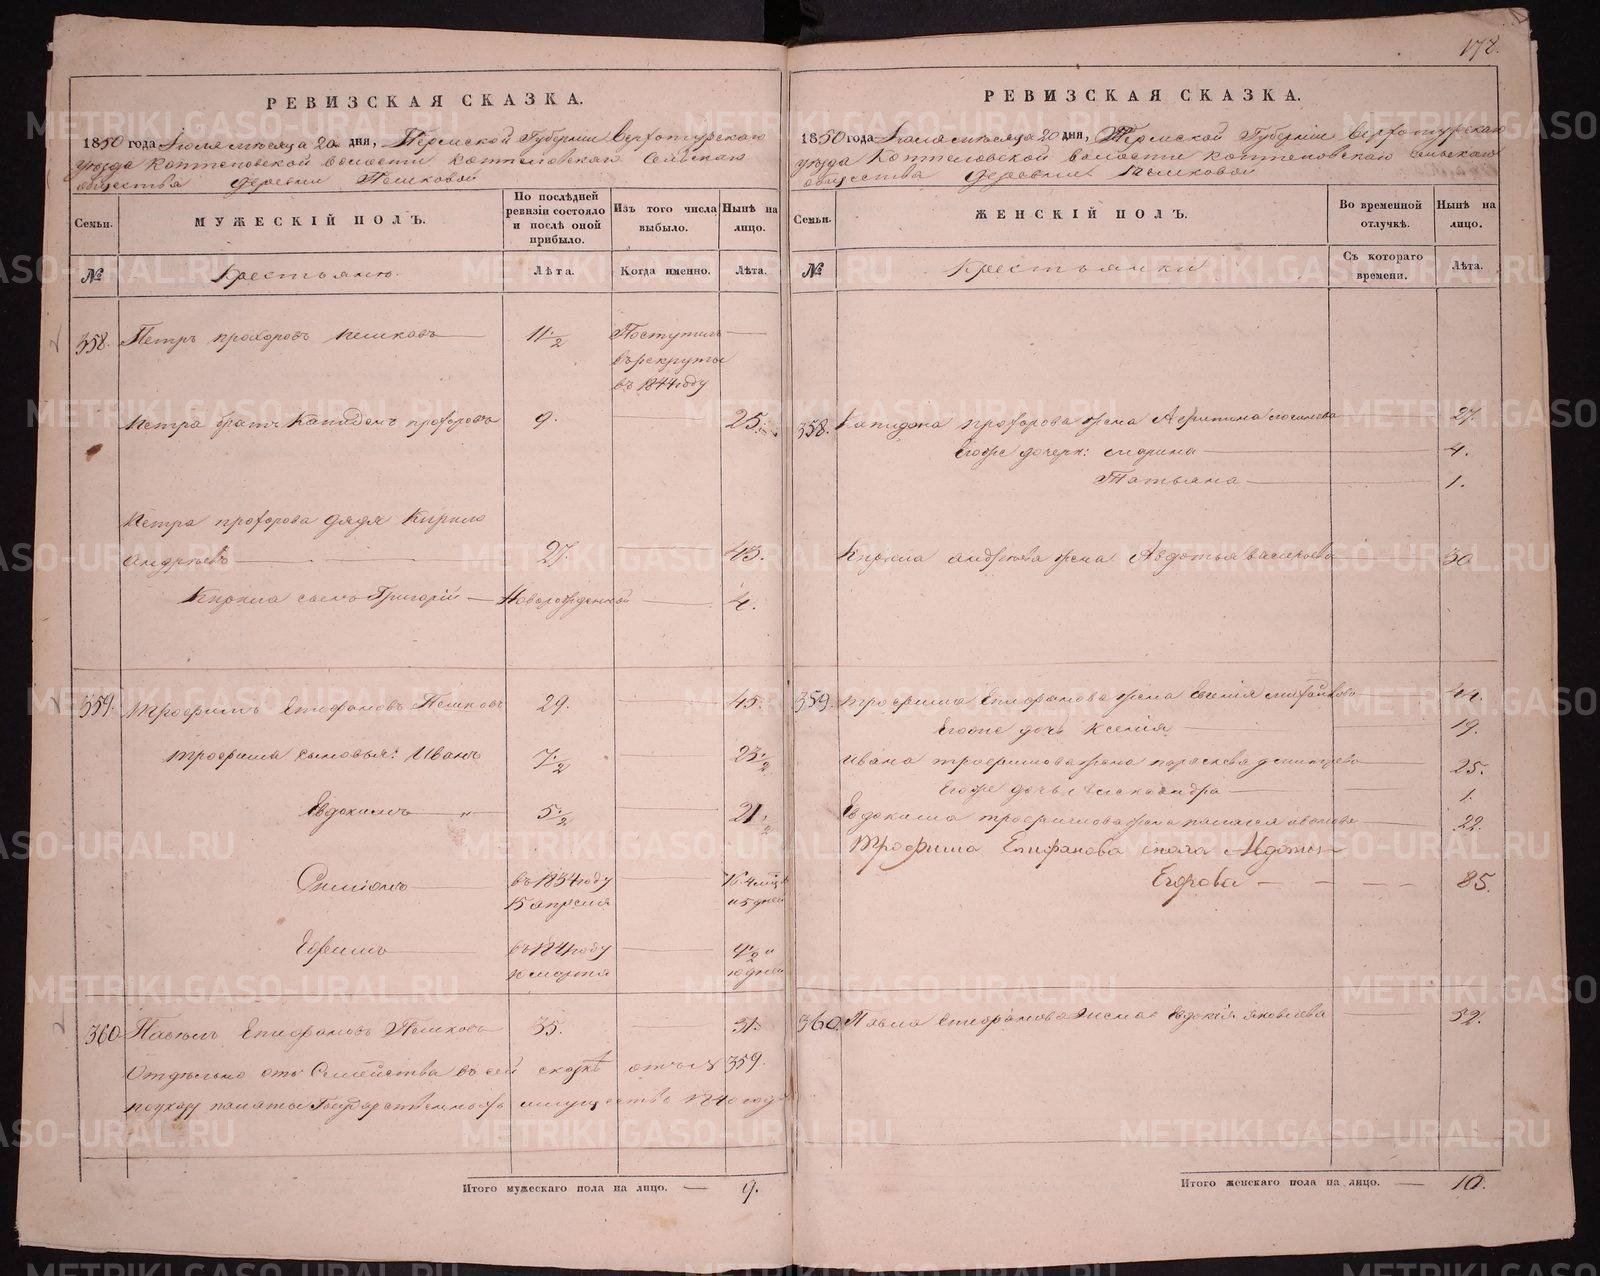 178.
РЕВИЗСКАЯ СКАЗКА.
1850 года Іюля мѣсяца 20 дня, Пермской Губерніи Верхотурскаго
уѣзда Коптеловской волости Коптеловскаго Сельскаго
общества деревни Пешковой
Семьи.
МУЖЕСКІЙ ПОЛЪ.
По послѣдней ревизіи состояло и послѣ оной прибыло.
Изъ того числа выбыло.
Нынѣ на лицо.
№
Крестьяне.
Лѣта.
Когда именно.
Лѣта.
358. Петръ Прохоровъ Пешковъ 11 1/2 Поступилъ
въ рекруты
въ 1844 году
Петра братъ Капидонъ Прохоровъ 9. 25.
Петра Прохорова дядя Кирило
Андреевъ 27. 43.
Кирила сынъ Григорій Новорожденной 4.
359. Трофимъ Епифановъ Пешковъ 29. 45.
Трофима сыновья: Иванъ 7 1/2 23 1/2
Евдокимъ " 5 1/2 21 1/2
Симіонъ въ 1834 году
15 апреля и 5 дней
Ефимъ 4 1/2 и
марта 10 дней
360 Павелъ Епифановъ Пешковъ 35. 51.
Отдѣльно отъ Семейства въ сей скаскѣ 359.
Государственныхъ имуществъ 1840 года
Итого мужескаго пола на лицо. — 9.
РЕВИЗСКАЯ СКАЗКА.
1850 года Іюля мѣсяца 20 дня, Пермской Губерніи Верхотурскаго
уѣзда Коптеловской волости Коптеловскаго Сельскаго
общества деревни Пешковой
Семьи.
ЖЕНСКІЙ ПОЛЪ.
Во временной отлучкѣ.
Нынѣ на лицо.
№
Крестьянки
Съ котораго времени.
Лѣта.
358. Капидона Прохорова жена Агрипина 27.
Егоже дочери: Марина 4.
Татьяна 1.
Кирила Андреева жена Авдотья Васильева 30
359. Трофима Епифанова жена Евгенія 44.
Егоже дочь Ксенія 19.
Ивана Трофимова жена Парасковья 25.
Егоже дочь Александра 1.
Евдокима Трофимова жена 22.
Трофима Епифанова Авдотья
Егорова 85.
360. Павла Епифанова жена Евдокія Яковлева 52.
Итого женскаго пола на лицо. — 10.
METRIKI.GASO-URAL.RU